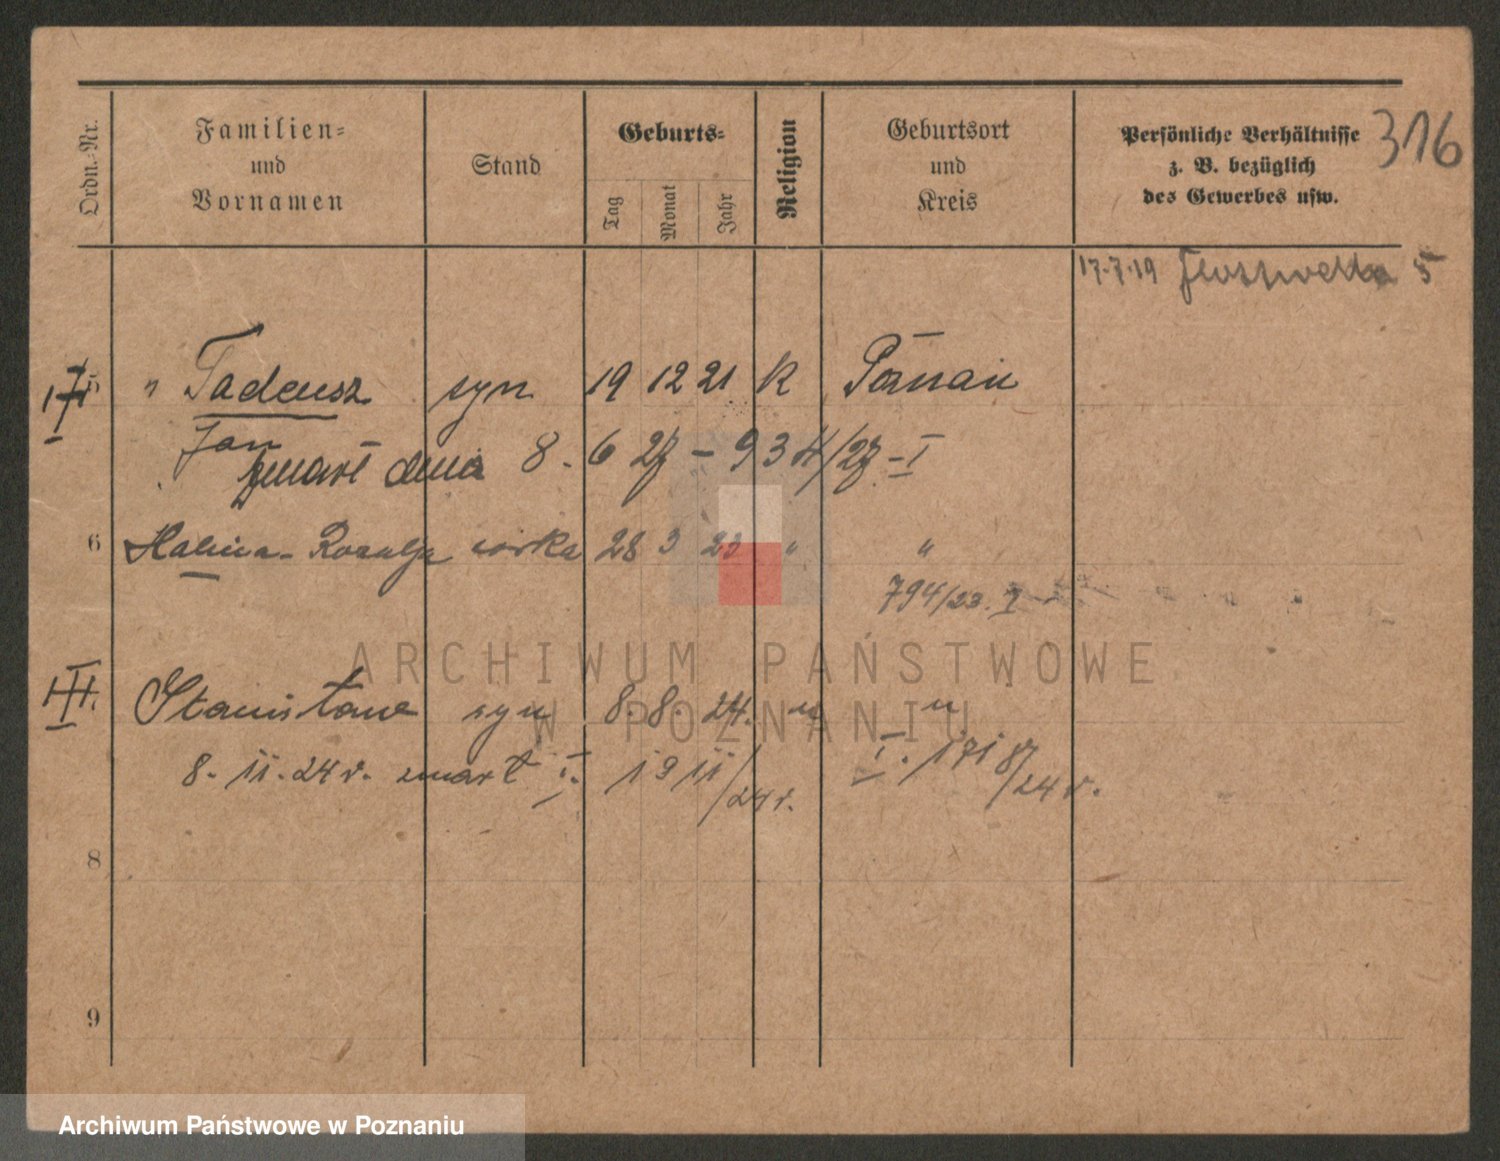 Ordn.-Nr.
Familien-
und
Vornamen
Stand
Geburts-
Tag
Monat
Jahr
Religion
Geburtsort
und
Kreis
Persönliche Verhältnisse
z. B. bezüglich
des Gewerbes usw.
316
17.7.19 5
5 " Tadeusz syn 19 12 21 k Poznań
Jan
zmarł dnia 8. 6 27 – 934/27 – I
6 Halina - Rozalja córka 28 3 23 " "
794/23. I
Stanisław syn 8. 8. 24. " "
8. 11. 24 r. zmarł I. 1911/24 r. I. 17187/24 r.
8
9
ARCHIWUM PAŃSTWOWE
W POZNANIU
Archiwum Państwowe w Poznaniu